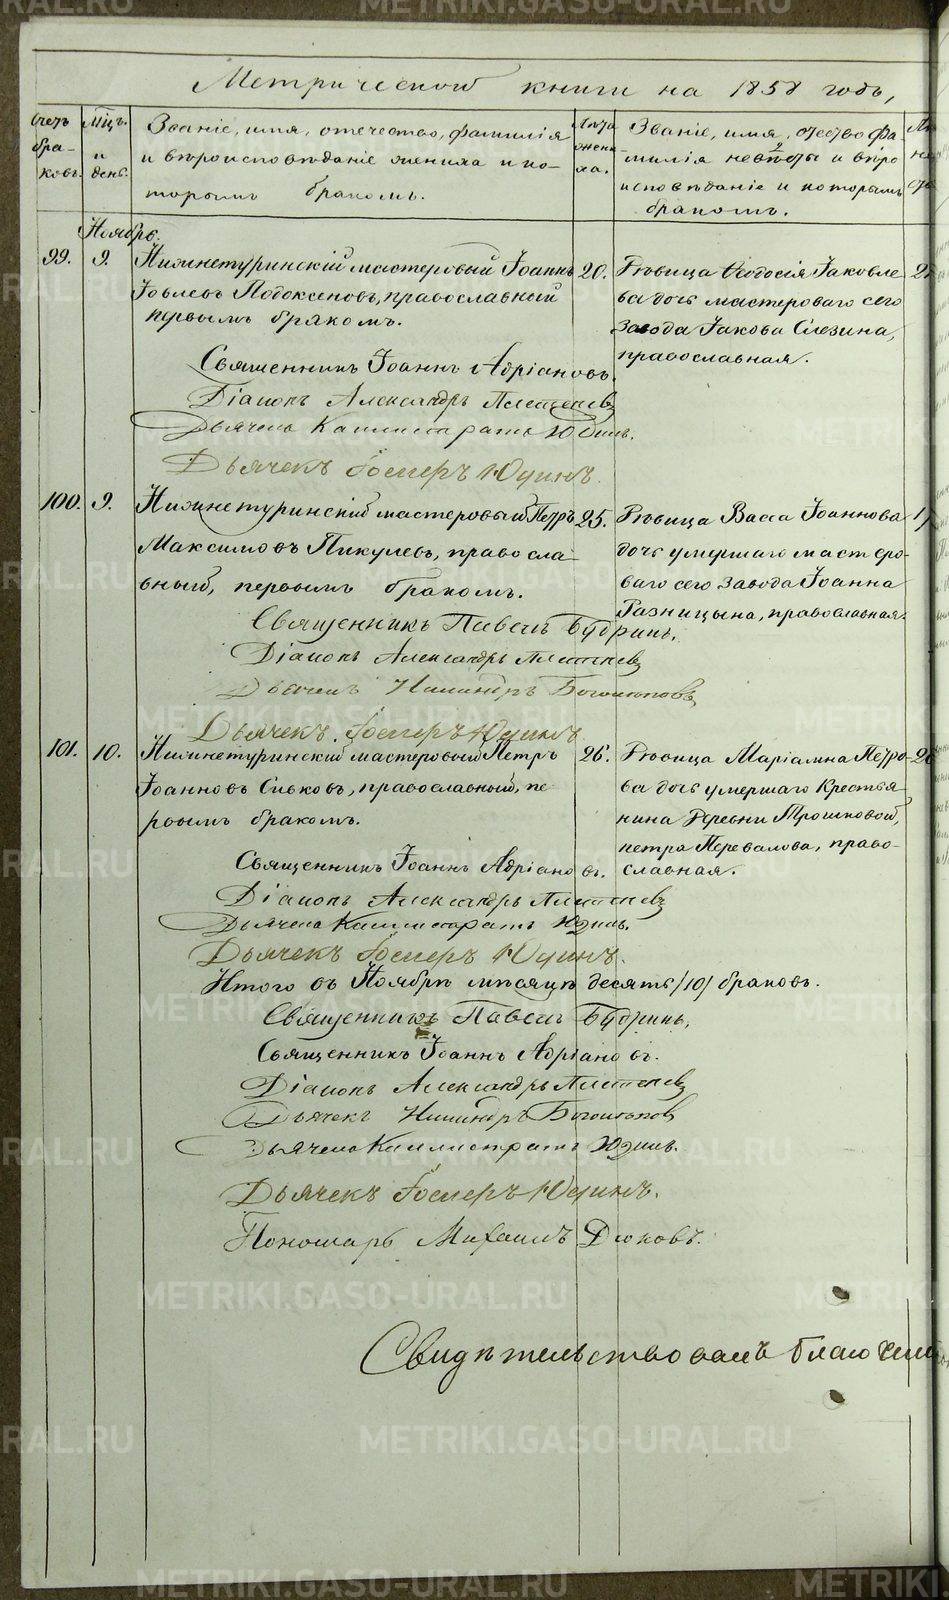 METRIKI.GASO-URAL.RU
Метрической книги на 1858 годъ,
Счетъ браковъ.
Мѣцъ. и день.
Званіе, имя, отечество, фамилія
и вѣроисповѣданіе жениха и ко-
торымъ бракомъ.
Лѣта жениха.
Званіе, имя, отечество фа-
милія невѣсты и вѣро
исповѣданіе и которымъ
бракомъ.
Ноябрь.
99. 9. Нижнетуринскій мастеровый Іоаннъ 20.
Іовлевъ Подоксеновъ, православный
первымъ бракомъ.
Дѣвица Ѳеодосія Іаковле
ва дочь мастероваго сего
завода Іакова Слезина,
православная.
Священникъ Іоаннъ Адріановъ.
Діаконъ Александръ Плетеневъ
Дьячекъ Каллистратъ Юдинъ.
Дьячекъ Госперъ Юдинъ.
100. 9. Нижнетуринскій мастеровый Петръ 25.
Максимовъ Пикулевъ, православ-
вный, первымъ бракомъ.
Дѣвица Васса Іоаннова
дочь умершаго мастеро-
ваго сего завода Іоанна
Разницына, православная.
Священникъ Павелъ Будринъ.
Діаконъ Александръ Плетеневъ
Дьячекъ Никандръ Богомоловъ
Дьячекъ Госперъ Юдинъ
101. 10. Нижнетуринскій мастеровый Петръ 26.
Іоанновъ Сивковъ, православный, пе
рвымъ бракомъ.
Дѣвица Маріамна Петро-
ва дочь умершаго Крестья
нина Деревни Трошковой,
петра Перевалова, право-
славная.
Священникъ Іоаннъ Адріановъ.
Діаконъ Александръ Плетеневъ
Дьячекъ Каллистратъ Юдинъ.
Дьячекъ Госперъ Юдинъ.
Итого въ Ноябрѣ мѣсяцѣ десять /10/ браковъ.
Священникъ Павелъ Будринъ,
Священникъ Іоаннъ Адріановъ.
Діаконъ Александръ Плетеневъ
Дьячекъ Никандръ Богомоловъ
Дьячекъ Каллистратъ Юдинъ.
Дьячекъ Госперъ Юдинъ.
Пономарь Михаилъ Дюковъ.
Свидѣтельствовалъ